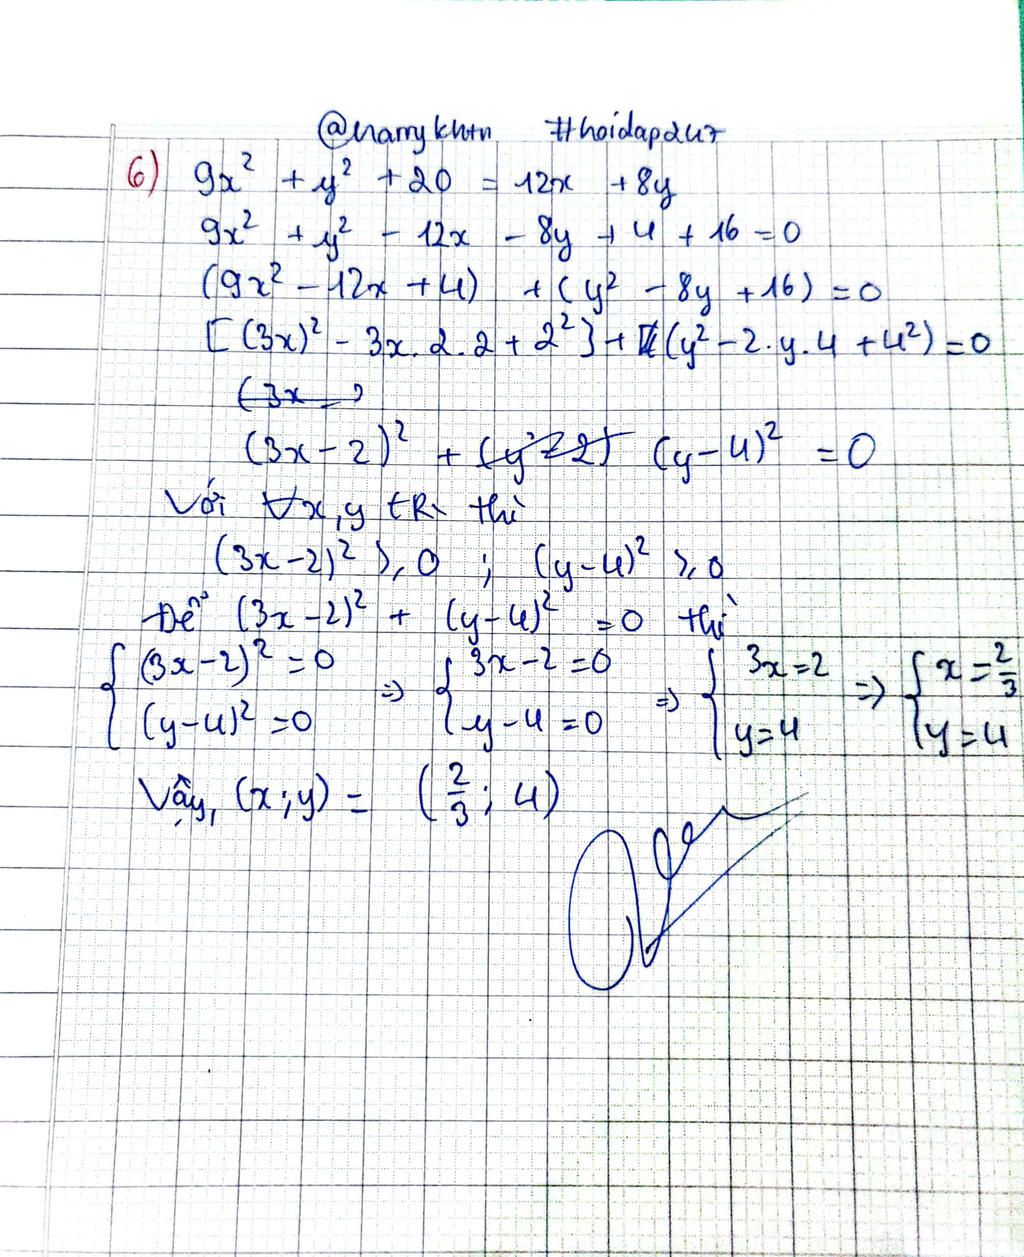 @narrykhtn #hoidap247
6) 9x² + y² + 20 = 12x + 8y
9x² + y² - 12x - 8y + 4 + 16 = 0
(9x² - 12x + 4) + (y² - 8y + 16) = 0
[(3x)² - 3x.2.2 + 2²] + (y² - 2.y.4 + 4²) = 0
(3x - )
(3x - 2)² + (y² - 2) (y - 4)² = 0
Với ∀x,y ∈ R thì
(3x - 2)² ≥ 0 ; (y - 4)² ≥ 0
Để (3x - 2)² + (y - 4)² = 0 thì
{ (3x - 2)² = 0 => { 3x - 2 = 0 => { 3x = 2 => { x = 2/3
(y - 4)² = 0 y - 4 = 0 y = 4 y = 4
Vậy, (x;y) = (2/3; 4)